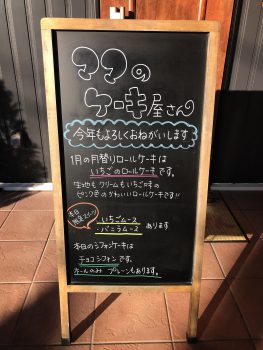 ママの
ケーキ屋さん
今年もよろしくおねがいします
1月の月替りロールケーキは
いちごのロールケーキです。
生地もクリームもいちご味の
ピンク色のかわいいロールケーキです!!
本日
限定スイーツ
・いちごムース
・バニラムース あります
本日のシフォンケーキは
チョコシフォンです。
ホールのみ プレーンもあります。